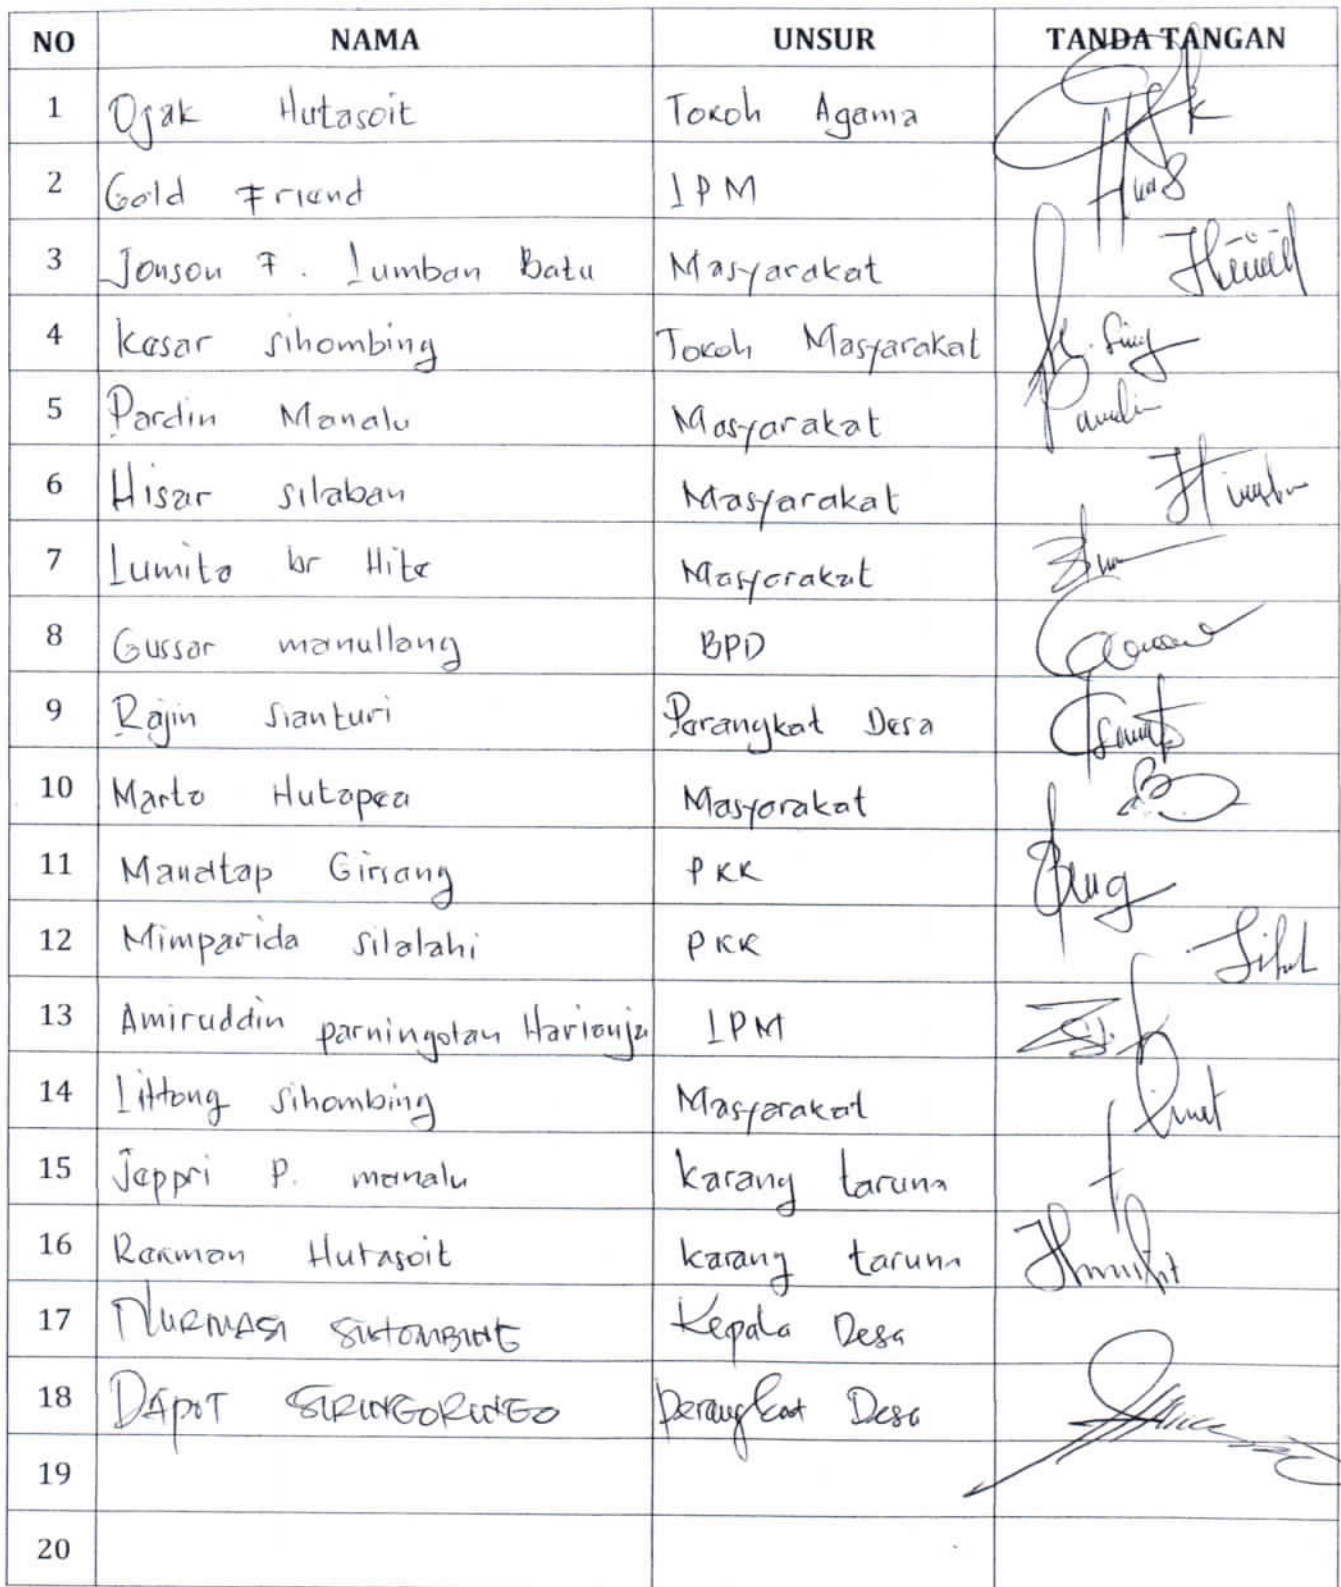 NO NAMA UNSUR TANDA TANGAN
1 Ojak Hutasoit Tokoh Agama
2 Gold Friend LPM
3 Jonson F. Lumban Batu Masyarakat
4 Kasar sihombing Tokoh Masyarakat
5 Pardin Manalu Masyarakat
6 Hisar silaban Masyarakat
7 Lumita br Hite Masyarakat
8 Gussar manullang BPD
9 Rajin sianturi Perangkat Desa
10 Marta Hutapea Masyarakat
11 Manatap Girsang PKK
12 Mimparida silalahi PKK
13 Amiruddin parningotan Harianja LPM
14 Littong sihombing Masyarakat
15 Jeppri P. manalu karang taruna
16 Rakman Hutasoit karang taruna
17 NURMASI SIHOMBING Kepala Desa
18 DAPOT SIRINGORINGO perangkat Desa
19
20